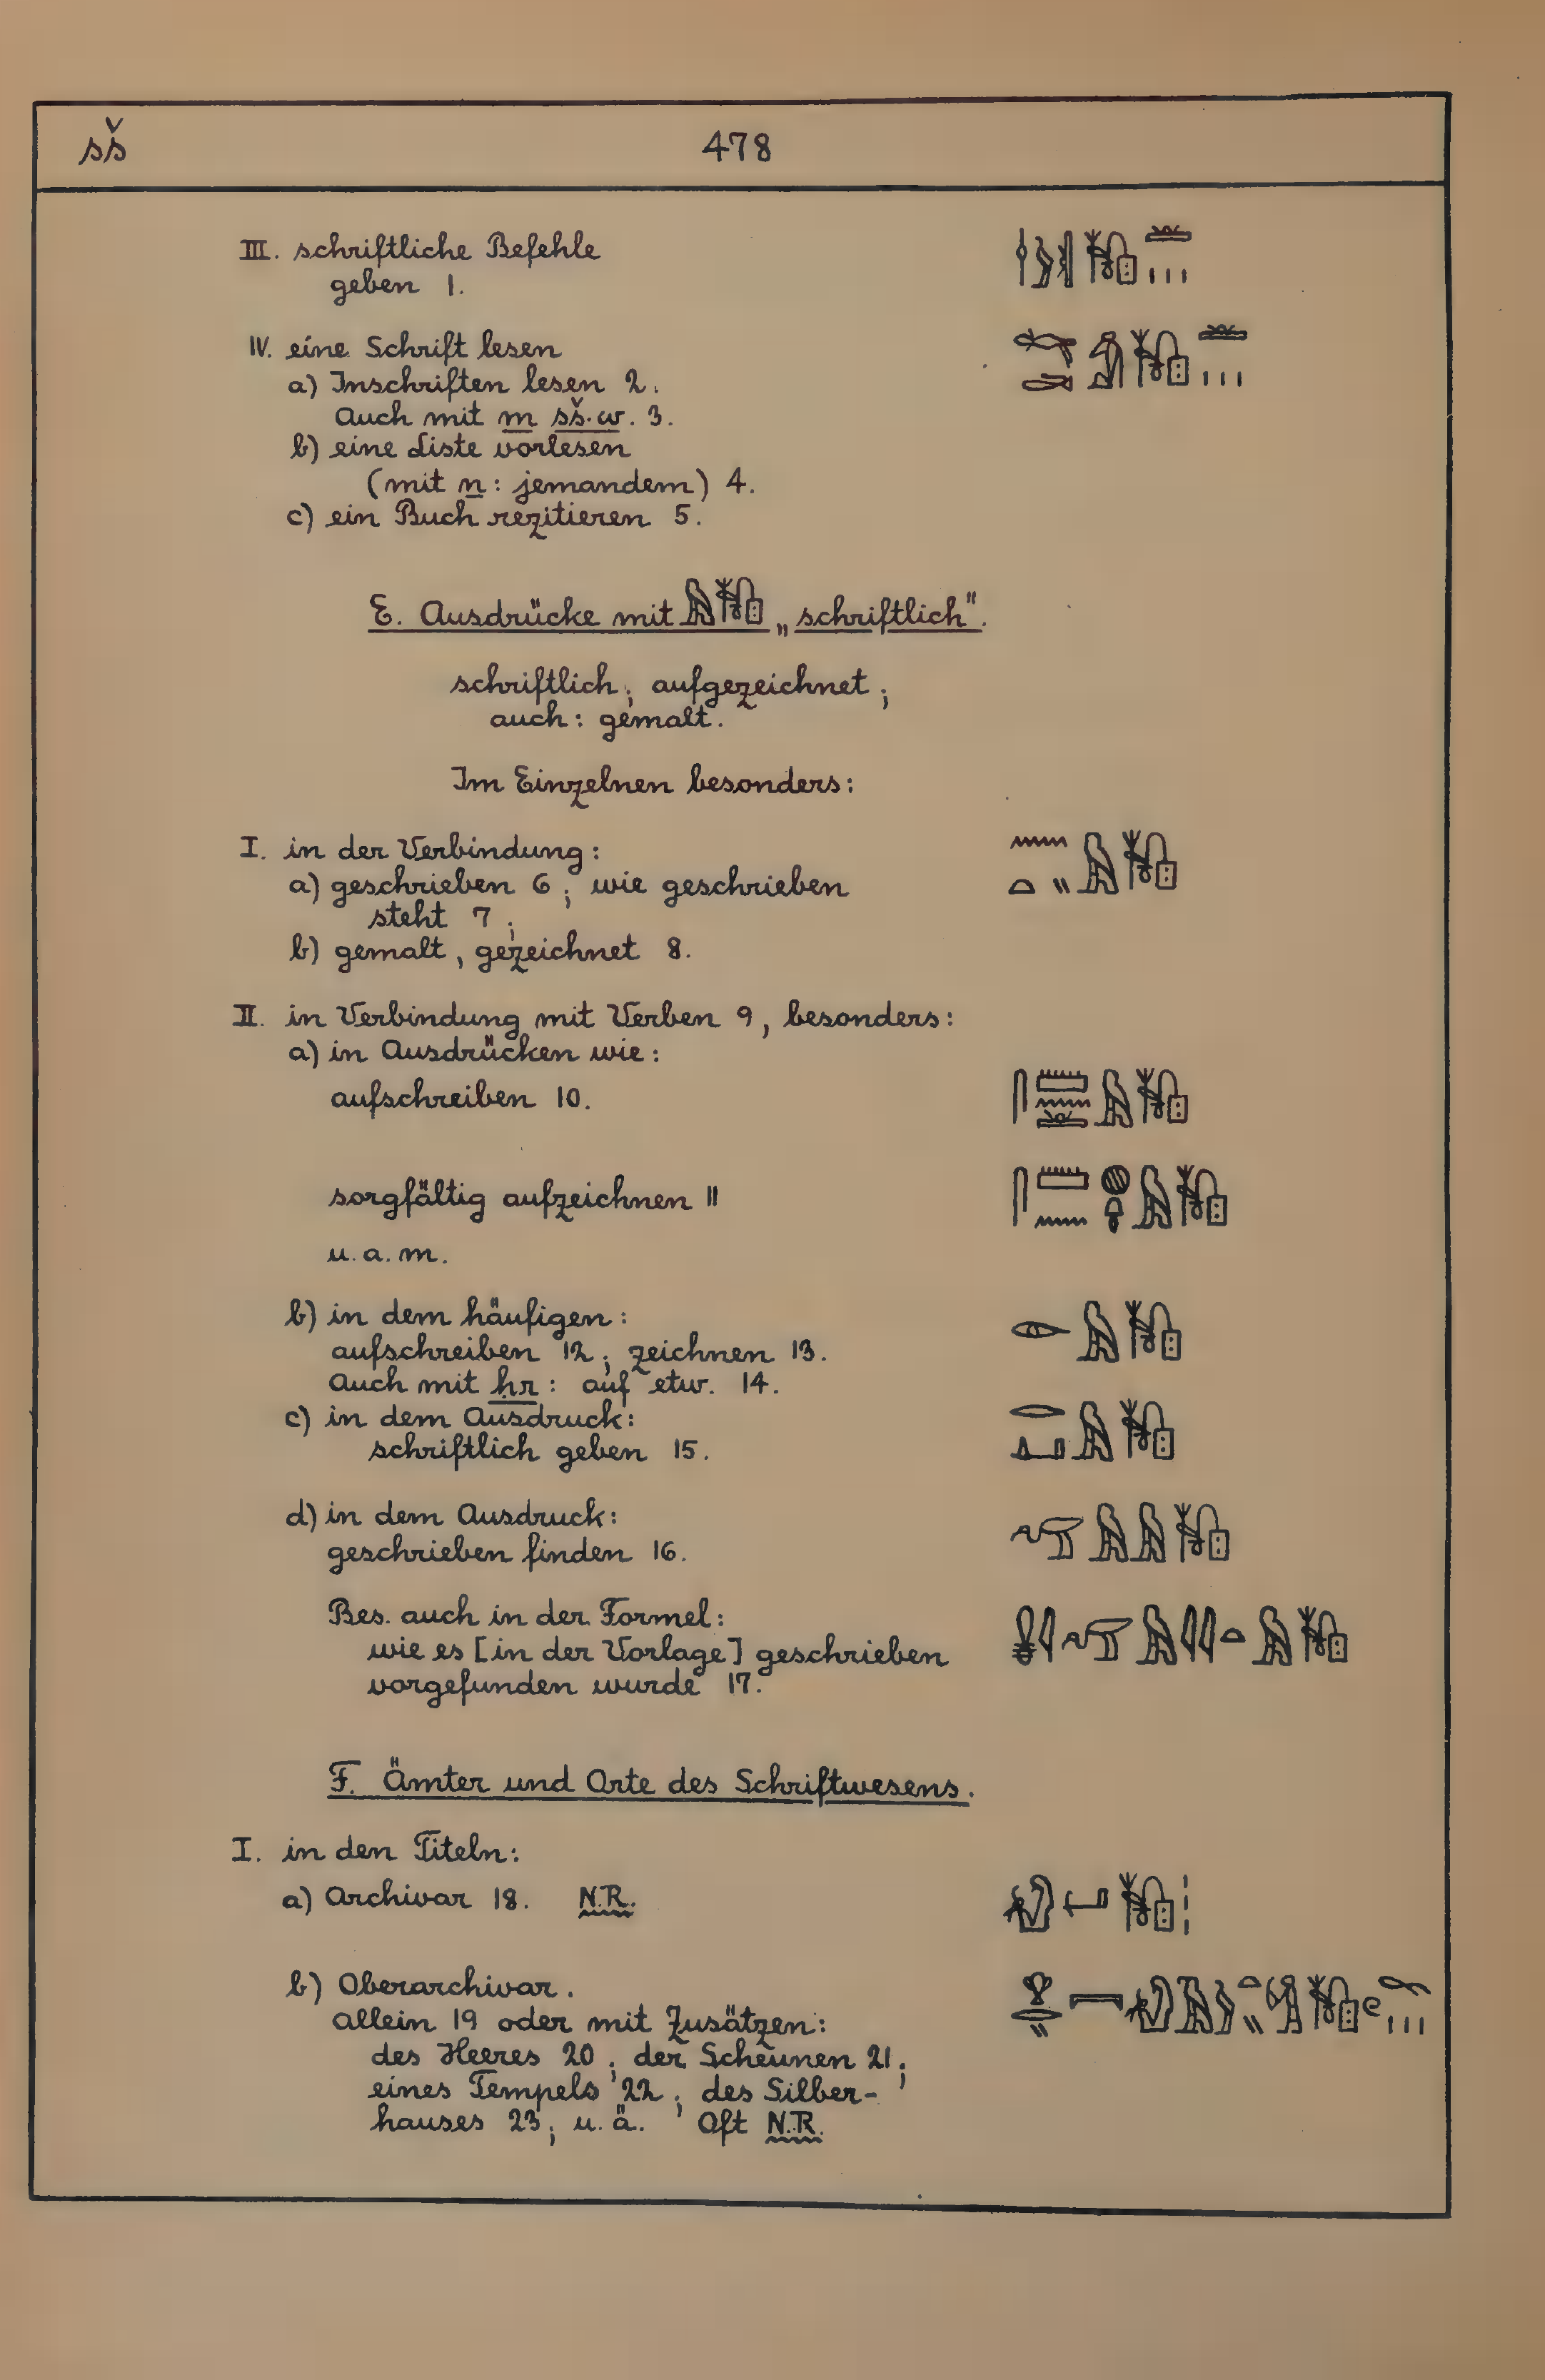 sš
478
III. schriftliche Befehle
geben 1.
IV. eine Schrift lesen
a) Inschriften lesen 2.
Auch mit m sš·w. 3.
b) eine Liste vorlesen
(mit n: jemandem) 4.
c) ein Buch rezitieren 5.
E. Ausdrücke mit „schriftlich".
schriftlich; aufgezeichnet;
auch: gemalt.
Im Einzelnen besonders:
I. in der Verbindung:
a) geschrieben 6; wie geschrieben
steht 7;
b) gemalt, gezeichnet 8.
II. in Verbindung mit Verben 9, besonders:
a) in Ausdrücken wie:
aufschreiben 10.
sorgfältig aufzeichnen 11
u.a.m.
b) in dem häufigen:
aufschreiben 12; zeichnen 13.
Auch mit hr: auf etw. 14.
c) in dem Ausdruck:
schriftlich geben 15.
d) in dem Ausdruck:
geschrieben finden 16.
Bes. auch in der Formel:
wie es [in der Vorlage] geschrieben
vorgefunden wurde 17.
F. Ämter und Orte des Schriftwesens.
I. in den Titeln:
a) Archivar 18. N.R.
b) Oberarchivar.
allein 19 oder mit Zusätzen:
des Heeres 20; der Scheunen 21;
eines Tempels 22; des Silber-
hauses 23; u.ä. Oft N.R.